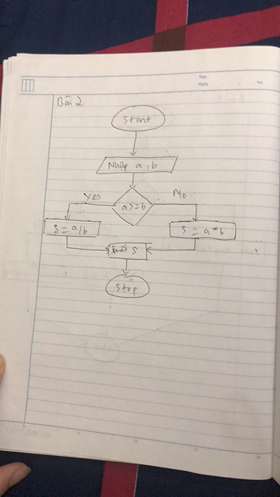 Bài 2
Start
Nhập a, b
Yes
No
a>=b
S = a/b
S = a*b
Xuất S
Stop